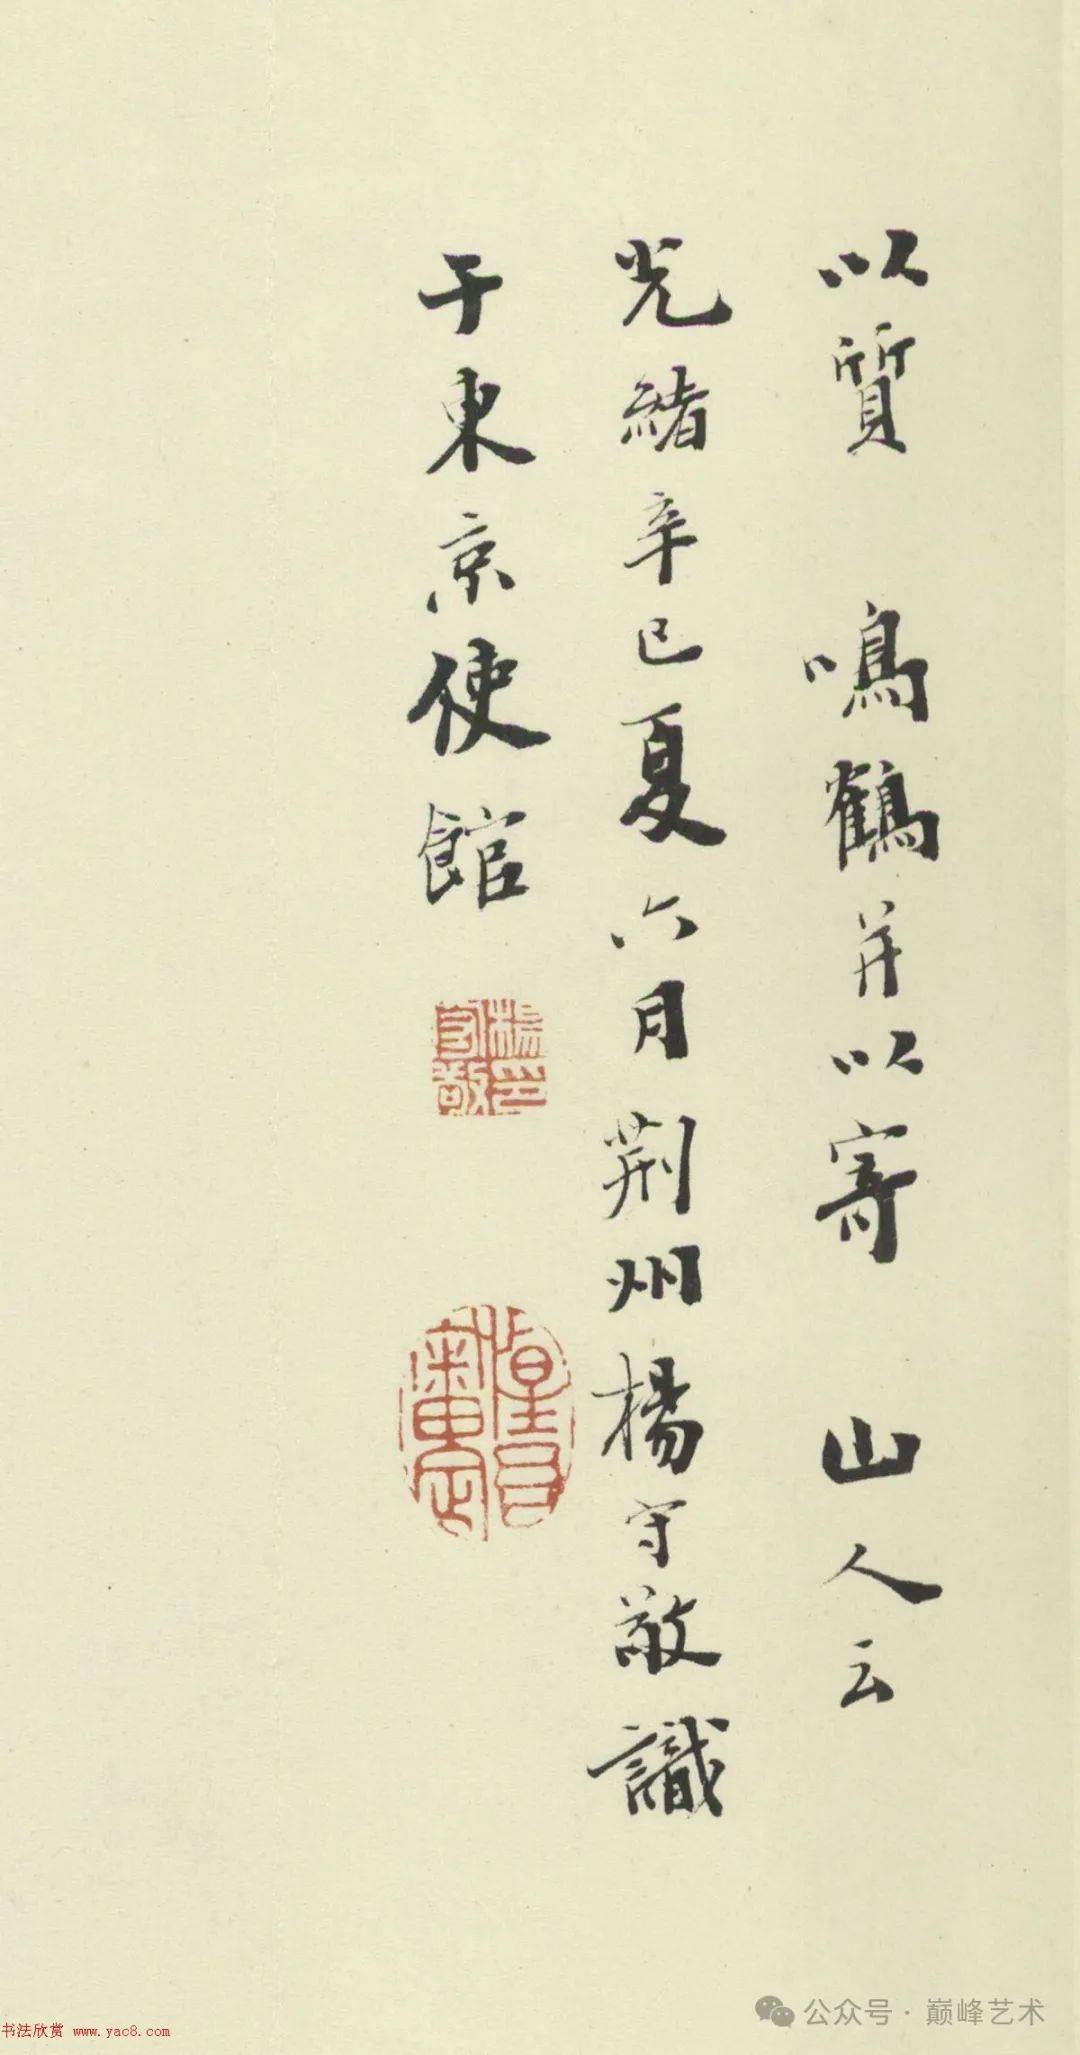 以質 鳴鶴并以寄 山人云
光緒辛巳夏六月荆州楊守敬識
于東京使館
楊印守敬
公众号 · 巅峰艺术
书法欣赏 www.yac8.com